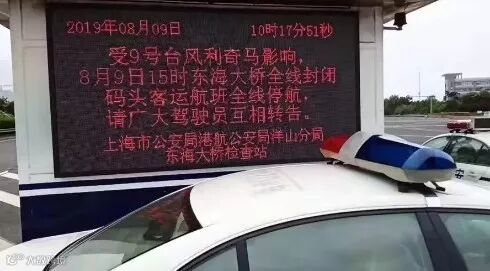 2019年08月09日 10时17分51秒
受9号台风利奇马影响,
8月9日15时东海大桥全线封闭
码头客运航班全线停航,
请广大驾驶员互相转告。
上海市公安局港航公安局洋山分局
东海大桥检查站